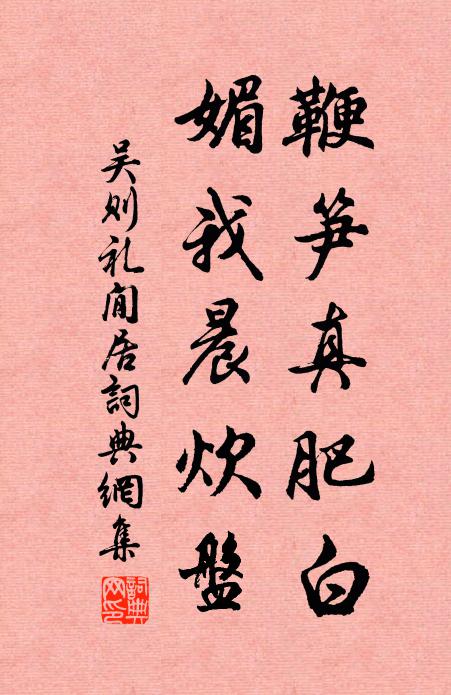 鞭笋真肥白
媚我晨炊盤
吴则礼閒居詞典網集
詞典网印